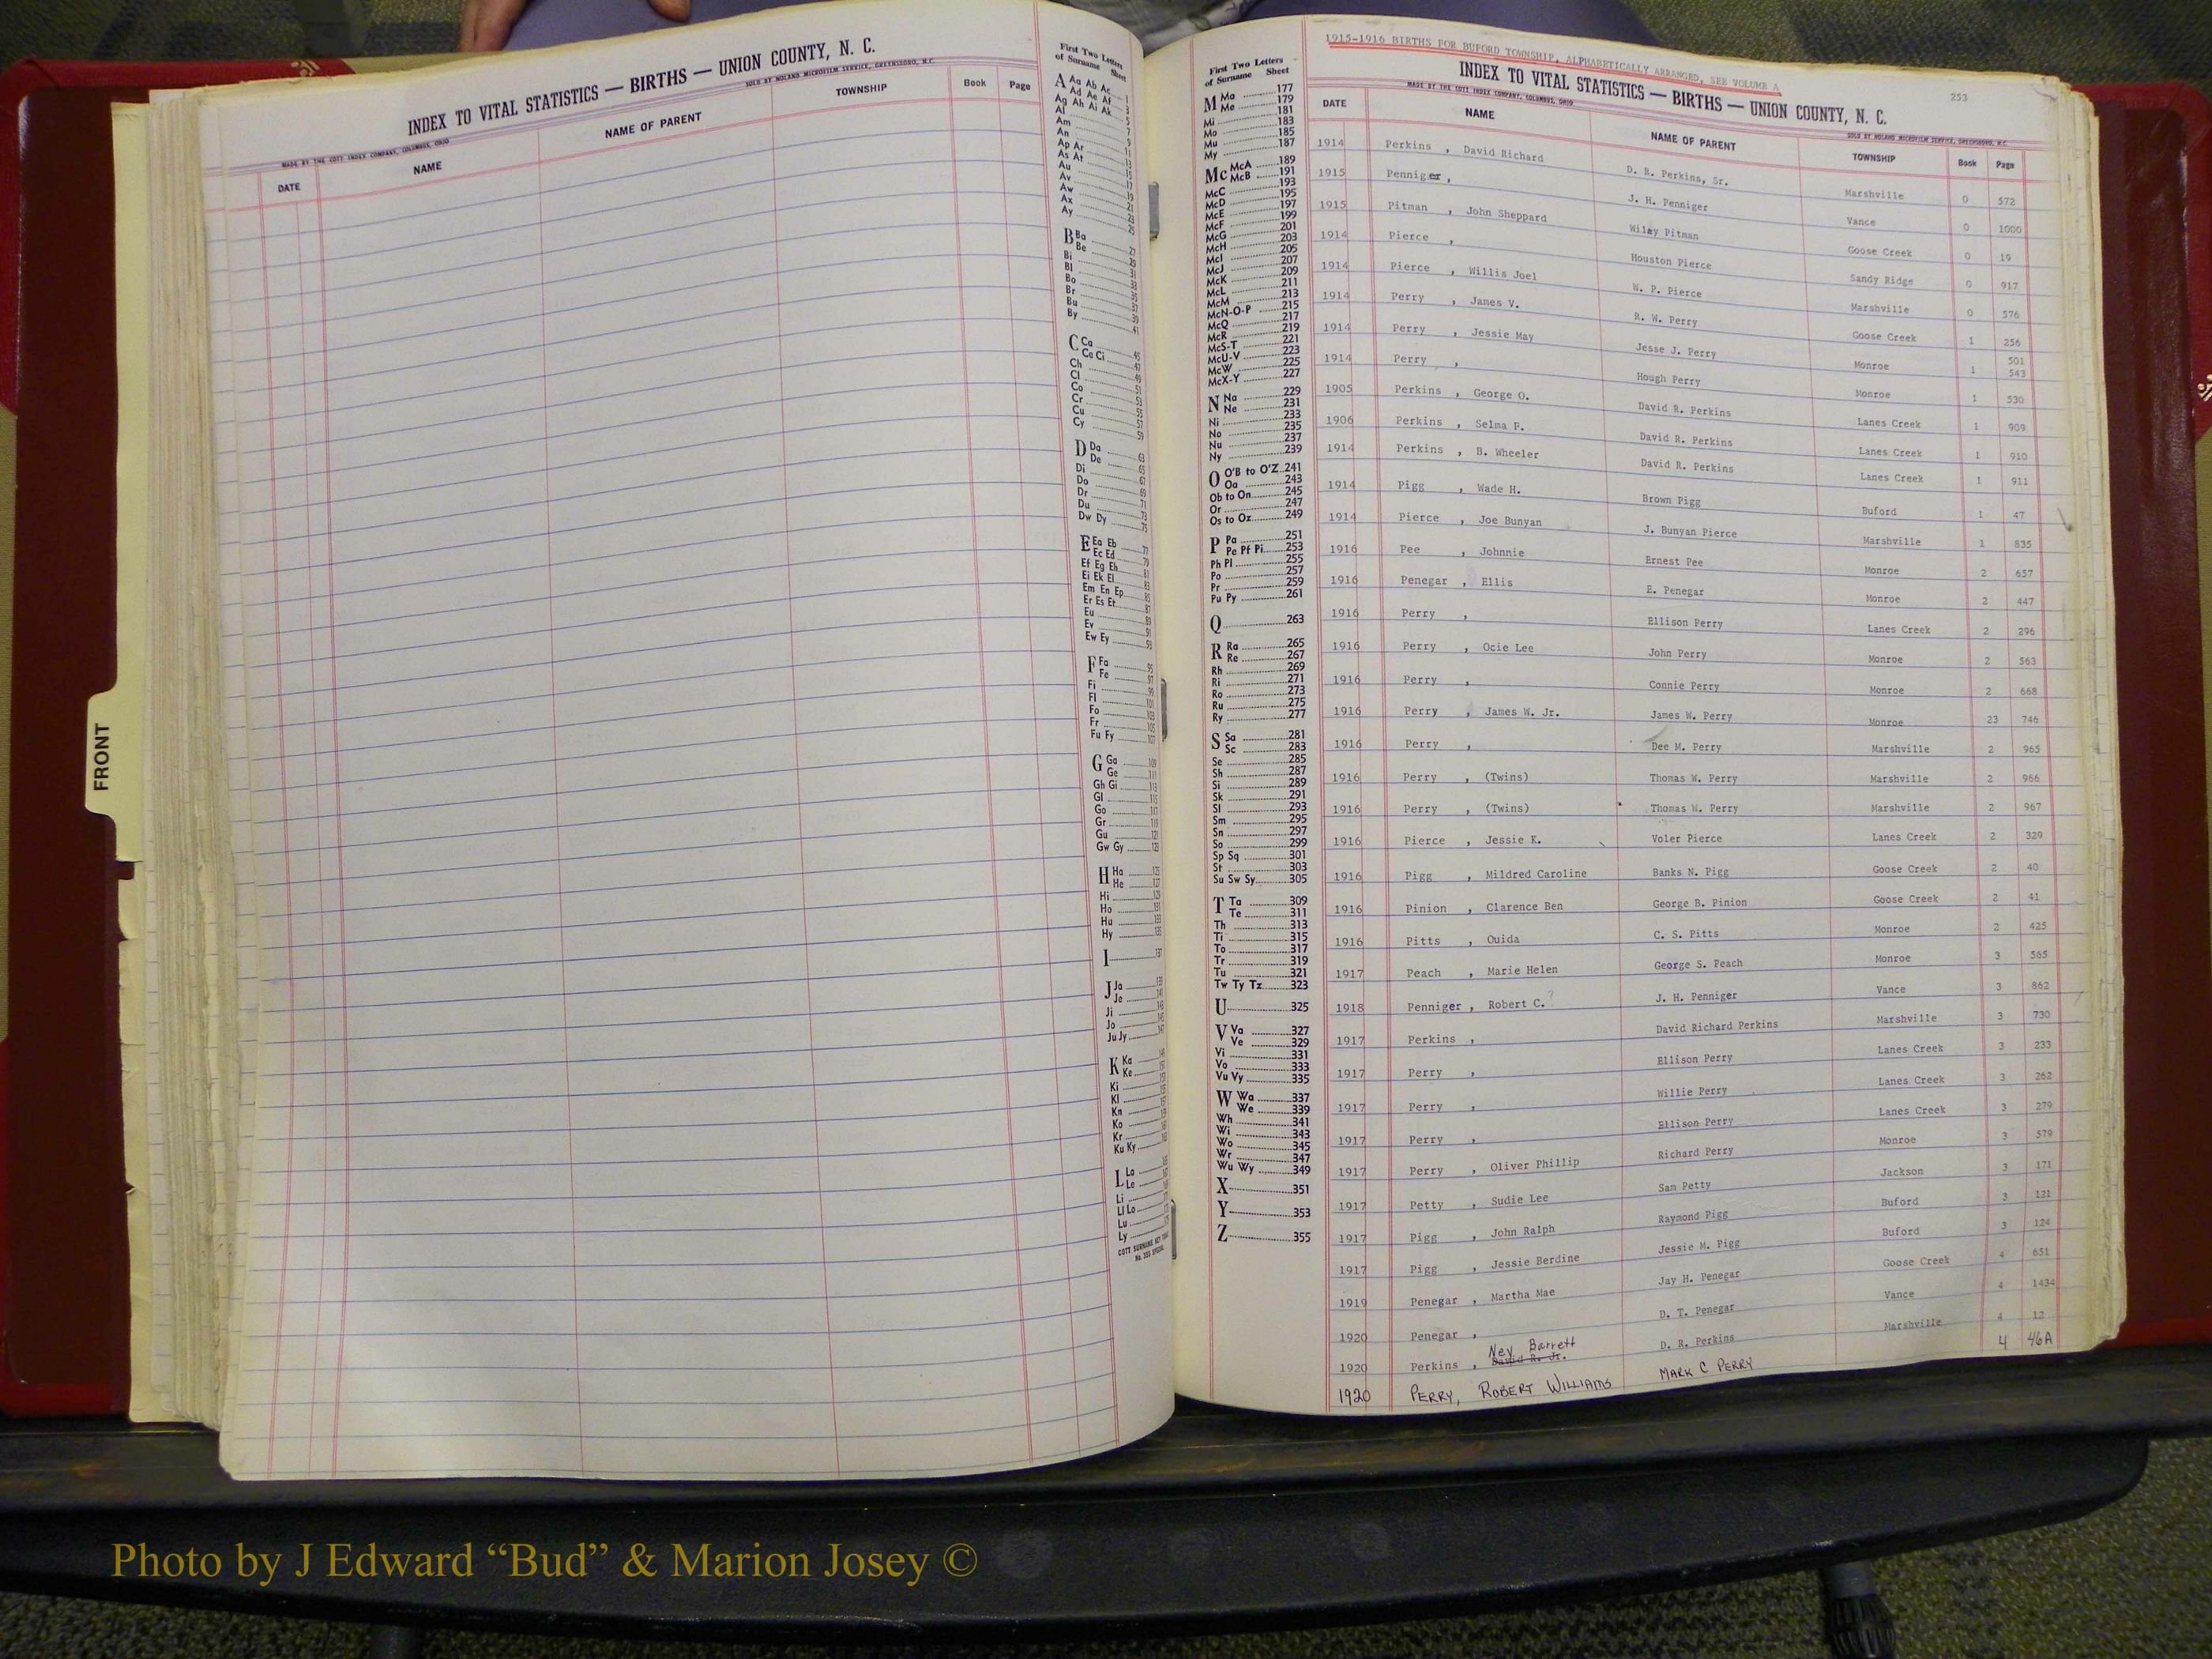 INDEX TO VITAL STATISTICS — BIRTHS — UNION COUNTY, N. C.
MADE BY THE COTT INDEX COMPANY, COLUMBUS, OHIO SOLD BY NOLAND MICROFILM SERVICE, GREENSBORO, N.C.
DATE NAME NAME OF PARENT TOWNSHIP Book Page
First Two Letters
of Surname Sheet
A Aa Ab Ac
Ad Ae Af
Ag Ah Ai Ak
Al
Am
An
Ap Ar
As At
Au
Av
Aw
Ax
Ay
B Ba
Be
Bi
Bl
Bo
Br
Bu
By
C Ca
Ce Ci
Ch
Cl
Co
Cr
Cu
Cy
D Da
De
Di
Do
Dr
Du
Dw Dy
E Ea Eb
Ec Ed
Ef Eg Eh
Ei Ek El
Em En Ep
Er Es Et
Eu
Ev
Ew Ey
F Fa
Fe
Fi
Fl
Fo
Fr
Fu Fy
G Ga
Ge
Gh Gi
Gl
Go
Gr
Gu
Gw Gy
H Ha
He
Hi
Ho
Hu
Hy
I
J Ja
Je
Ji
Jo
Ju Jy
K Ka
Ke
Ki
Kl
Kn
Ko
Kr
Ku Ky
L La
Le
Li
Ll Lo
Lu
Ly
FRONT
First Two Letters
of Surname Sheet
M Ma 177
Me 179
Mi 181
Mo 183
Mu 185
My 187
Mc McA 189
McB 191
McC 193
McD 195
McE 197
McF 199
McG 201
McH 203
McI 205
McJ 207
McK 209
McL 211
McM 213
McN-O-P 215
McQ 217
McR 219
McS-T 221
McU-V 223
McW 225
McX-Y 227
N Na 229
Ne 231
Ni 233
No 235
Nu 237
Ny 239
O O'B to O'Z 241
Oa 243
Ob to On 245
Or 247
Os to Oz 249
P Pa 251
Pe Pf Pi 253
Ph Pl 255
Po 257
Pr 259
Pu Py 261
Q 263
R Ra 265
Re 267
Rh 269
Ri 271
Ro 273
Ru 275
Ry 277
S Sa 281
Sc 283
Se 285
Sh 287
Si 289
Sk 291
Sl 293
Sm 295
Sn 297
So 299
Sp Sq 301
St 303
Su Sw Sy 305
T Ta 309
Te 311
Th 313
Ti 315
To 317
Tr 319
Tu 321
Tw Ty Tz 323
U 325
V Va 327
Ve 329
Vi 331
Vo 333
Vu Vy 335
W Wa 337
We 339
Wh 341
Wi 343
Wo 345
Wr 347
Wu Wy 349
X 351
Y 353
Z 355
1915-1916 BIRTHS FOR BUFORD TOWNSHIP, ALPHABETICALLY ARRANGED, SEE VOLUME A
253
INDEX TO VITAL STATISTICS — BIRTHS — UNION COUNTY, N. C.
MADE BY THE COTT INDEX COMPANY, COLUMBUS, OHIO SOLD BY NOLAND MICROFILM SERVICE, GREENSBORO, N.C.
DATE NAME NAME OF PARENT TOWNSHIP Book Page
1914 Perkins , David Richard D. R. Perkins, Sr. Marshville 0 572
1915 Penniger , J. H. Penniger Vance 0 1000
1915 Pitman , John Sheppard Wiley Pitman Goose Creek 0 19
1914 Pierce , Houston Pierce Sandy Ridge 0 917
1914 Pierce , Willis Joel W. P. Pierce Marshville 0 576
1914 Perry , James V. R. W. Perry Goose Creek 1 256
1914 Perry , Jessie May Jesse J. Perry Monroe 1 501 543
1914 Perry , Hough Perry Monroe 1 530
1905 Perkins , George O. David R. Perkins Lanes Creek 1 909
1906 Perkins , Selma F. David R. Perkins Lanes Creek 1 910
1914 Perkins , B. Wheeler David R. Perkins Lanes Creek 1 911
1914 Pigg , Wade H. Brown Pigg Buford 1 47
1914 Pierce , Joe Bunyan J. Bunyan Pierce Marshville 1 835
1916 Pee , Johnnie Ernest Pee Monroe 2 657
1916 Penegar , Ellis E. Penegar Monroe 2 447
1916 Perry , Ellison Perry Lanes Creek 2 296
1916 Perry , Ocie Lee John Perry Monroe 2 563
1916 Perry , Connie Perry Monroe 2 668
1916 Perry , James W. Jr. James W. Perry Monroe 23 746
1916 Perry , Dee M. Perry Marshville 2 965
1916 Perry , (Twins) Thomas W. Perry Marshville 2 966
1916 Perry , (Twins) Thomas W. Perry Marshville 2 967
1916 Pierce , Jessie K. Voler Pierce Lanes Creek 2 329
1916 Pigg , Mildred Caroline Banks N. Pigg Goose Creek 2 40
1916 Pinion , Clarence Ben George B. Pinion Goose Creek 2 41
1916 Pitts , Ouida C. S. Pitts Monroe 2 425
1917 Peach , Marie Helen George S. Peach Monroe 3 565
1918 Penniger , Robert C. J. H. Penniger Vance 3 862
1917 Perkins , David Richard Perkins Marshville 3 730
1917 Perry , Ellison Perry Lanes Creek 3 233
1917 Perry , Willie Perry Lanes Creek 3 262
1917 Perry , Ellison Perry Lanes Creek 3 279
1917 Perry , Oliver Phillip Richard Perry Monroe 3 579
1917 Petty , Sudie Lee Sam Petty Jackson 3 171
1917 Pigg , John Ralph Raymond Pigg Buford 3 121
1917 Pigg , Jessie Berdine Jessie M. Pigg Buford 3 124
1919 Penegar , Martha Mae Jay H. Penegar Goose Creek 4 651
1920 Penegar , D. T. Penegar Vance 4 1434
Ney Barrett
1920 Perkins , David R. Jr. D. R. Perkins Marshville 4 12
1920 PERRY, ROBERT WILLIAMS MARK C PERRY 4 46A
Photo by J Edward “Bud” & Marion Josey ©